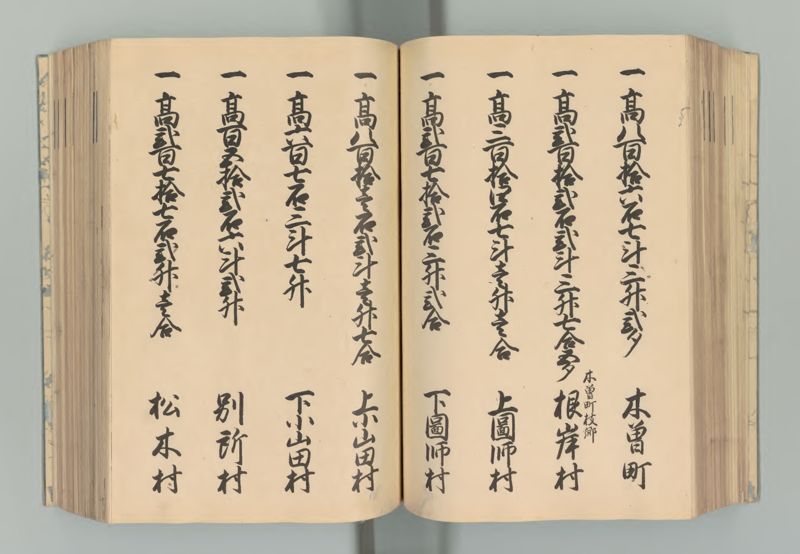 一 高八百拾六石七斗三升弐夕 木曽町
一 高弐百拾弐石弐斗三升七合五夕 木曽町枝郷 根岸村
一 高三百拾四石七斗壱升壱合 上圖師村
一 高弐百七拾弐石三升弐合 下圖師村
一 高八百拾壱石弐斗壱升七合 上小山田村
一 高六百七石三斗七升 下小山田村
一 高百五拾弐石六斗弐升 別所村
一 高弐百七拾七石弐升壱合 松木村